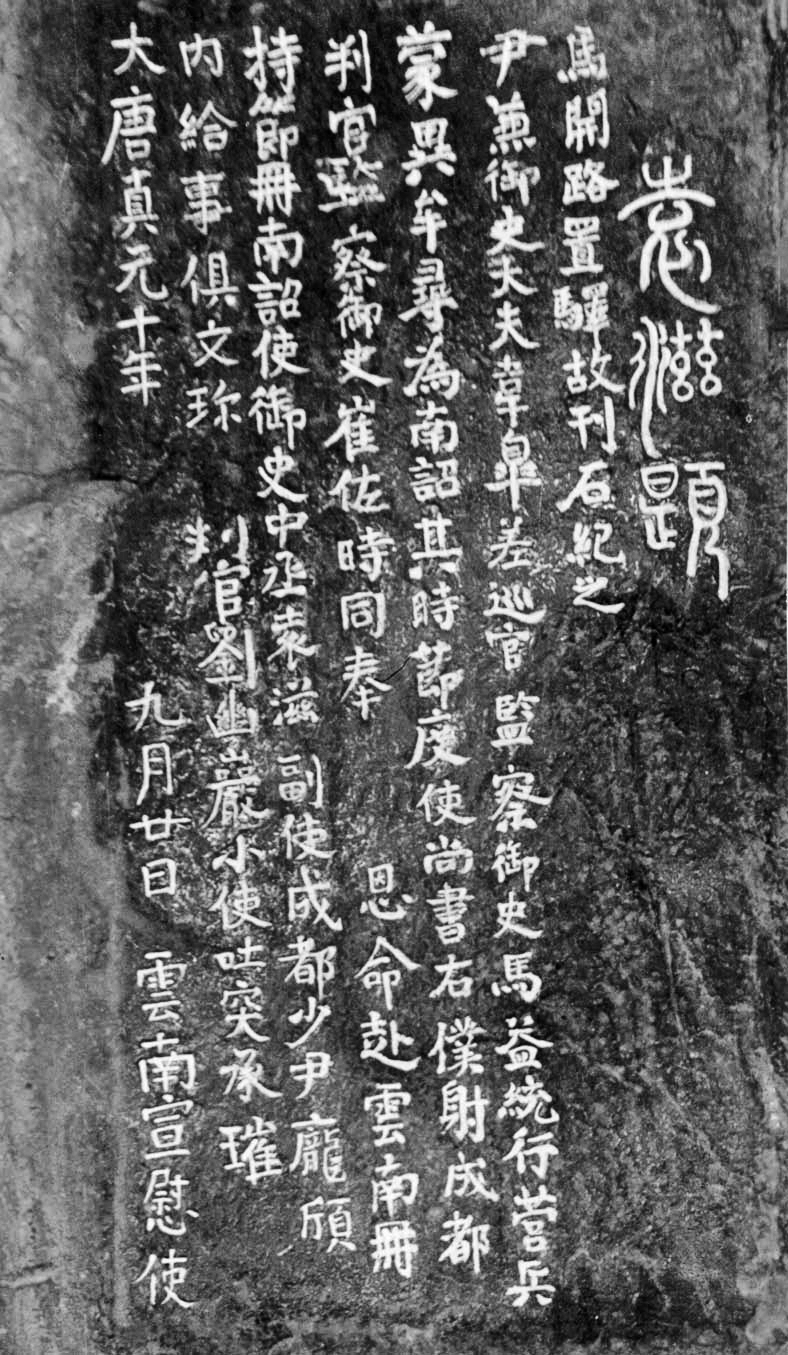 大唐貞元十年 九月廿日 雲南宣慰使
内給事俱文珎 判官劉幽巖小使吐突承璀
持節冊南詔使御史中丞袁滋 副使成都少尹龐頎
判官監察御史崔佐時同奉 恩命赴雲南冊
蒙異牟尋為南詔其時節度使尚書右僕射成都
尹兼御史大夫韋皐差巡官監察御史馬益統行營兵
馬開路置驛故刊石紀之
袁滋題